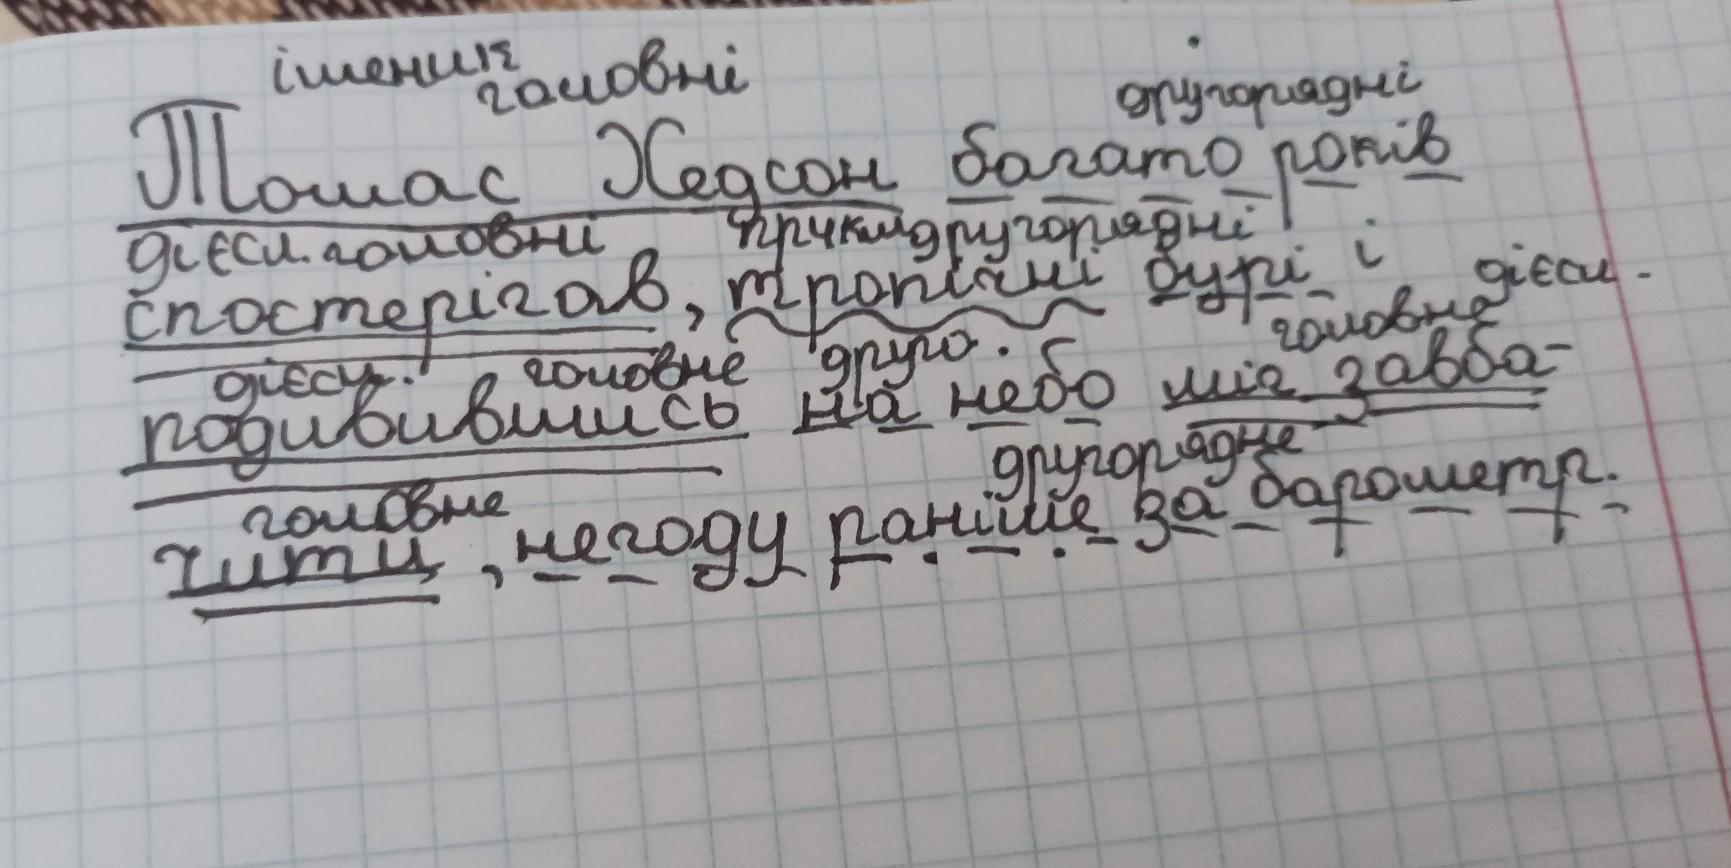 іменник головні другорядні
Томас Хедсон багато років
дієсл. головні прикм другорядні
спостерігав, тропічні бурі і
дієсл. головне друго. головне дієсл.
подивившись на небо міг завба-
головне другорядне
чити, негоду раніше за барометр.